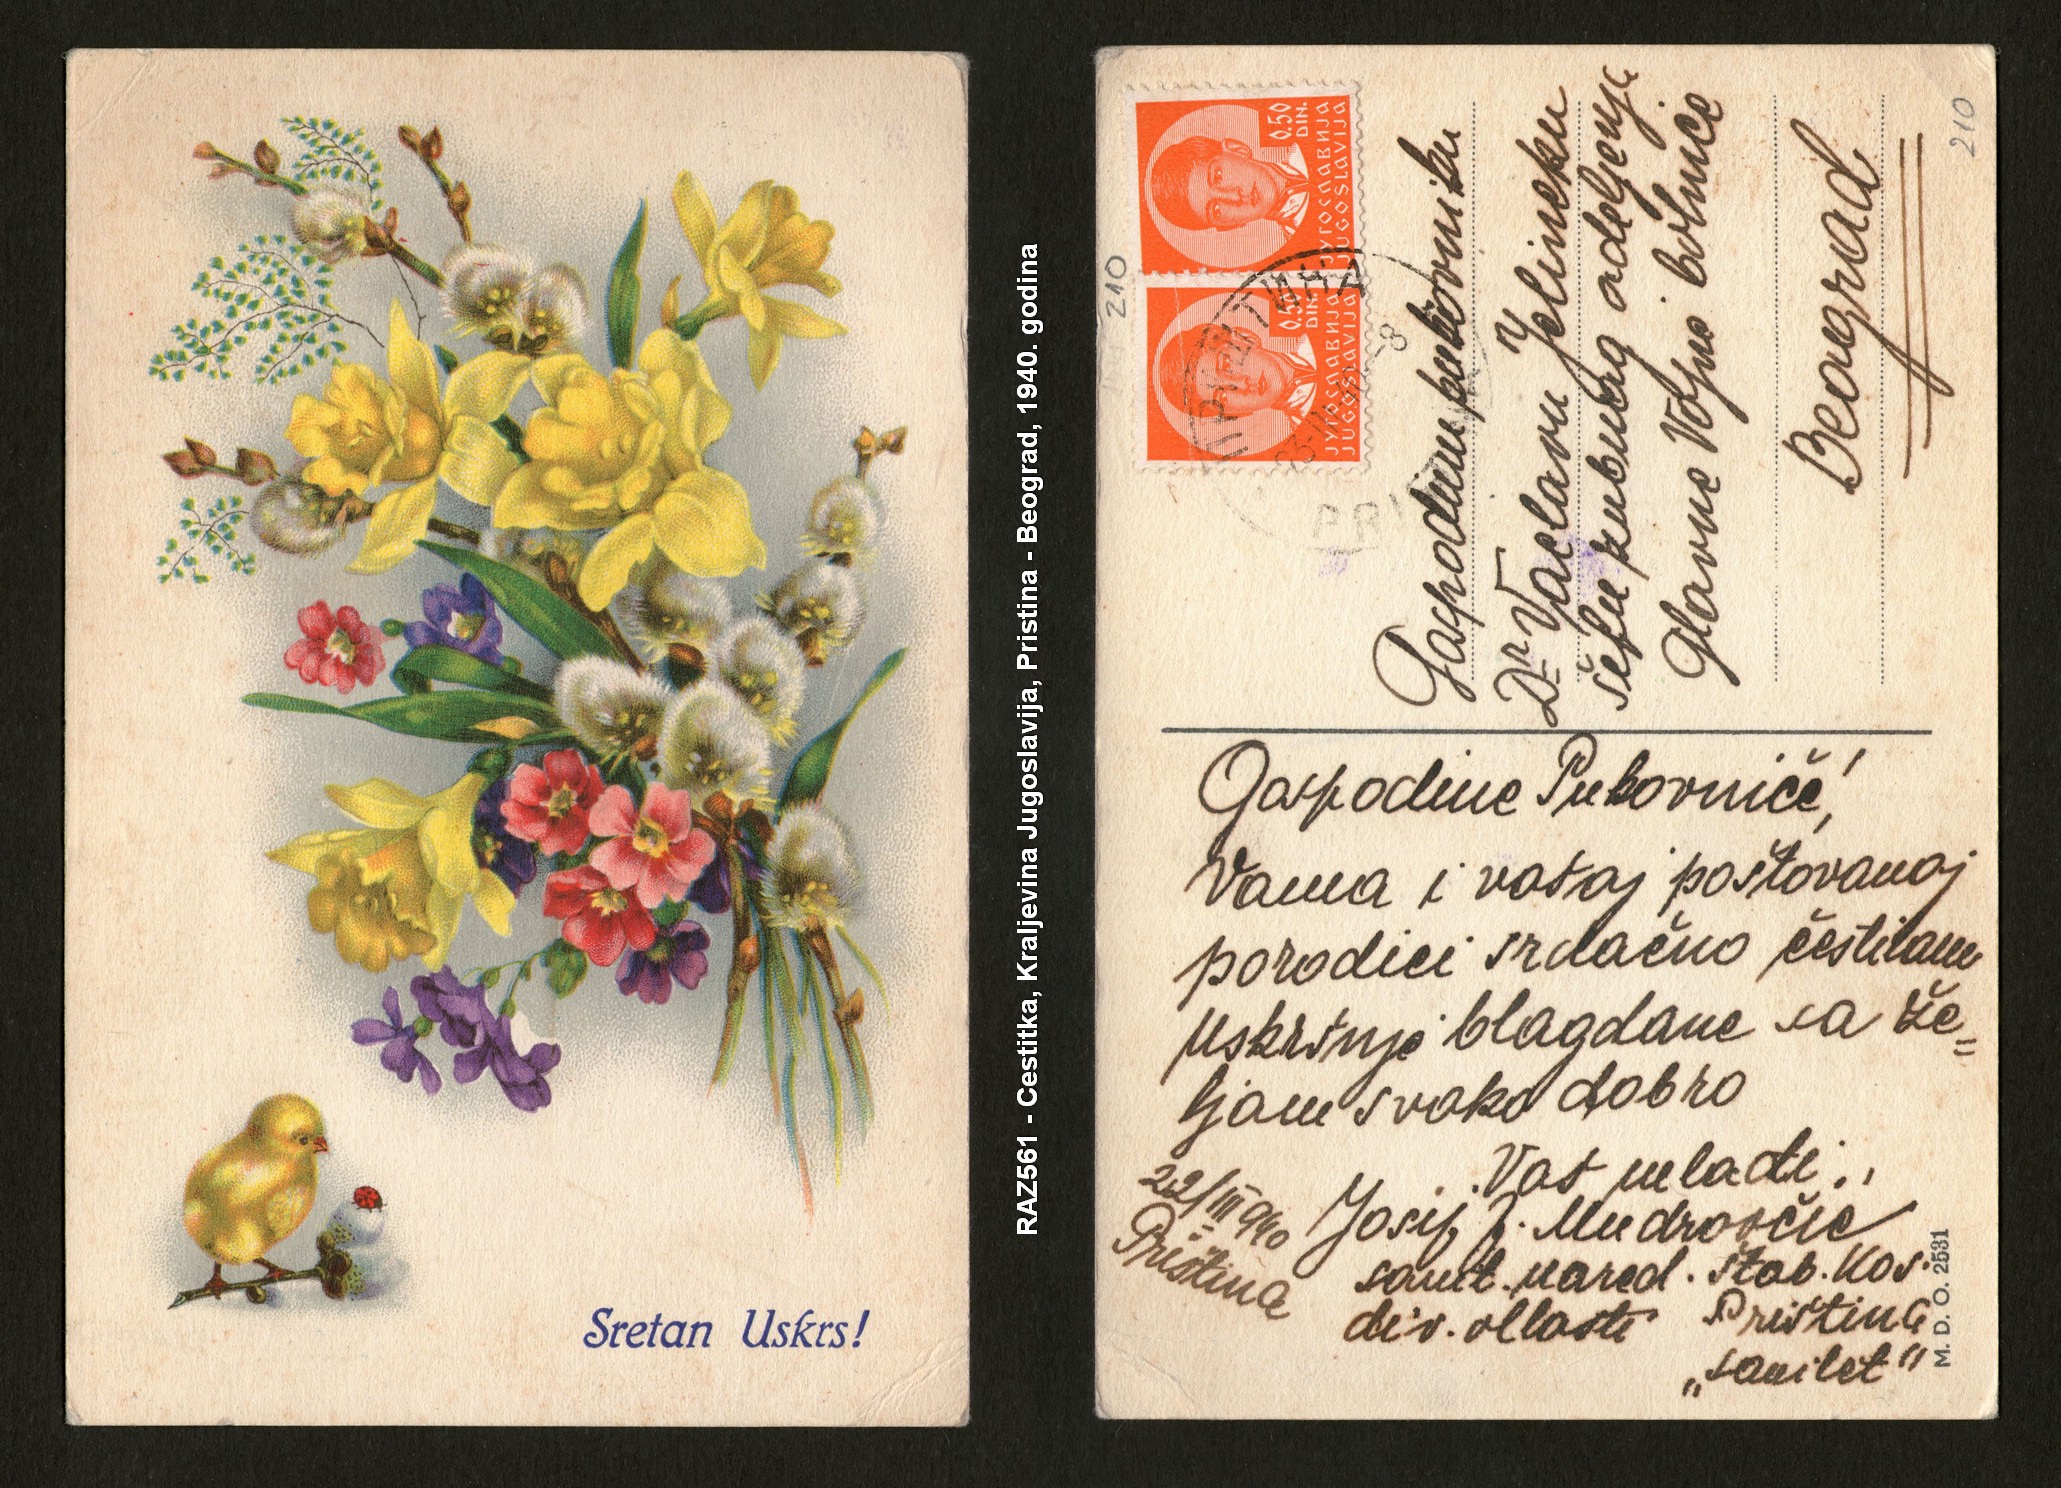 Sretan Uskrs!
RAZ561 - Cestitka, Kraljevina Jugoslavija, Pristina - Beograd, 1940. godina
210
0.50
DIN.
ЈУГОСЛАВИЈА
JUGOSLAVIJA
0.50
DIN.
ЈУГОСЛАВИЈА
JUGOSLAVIJA
ПРИШТИНА
PRI
210
Gospodinu pukovniku
Dr Vaclavu Jelineku
šefu zubnog odeljenja
Glavne Vojne bolnice
Beograd
Gospodine Pukovniče,
Vama i vašoj poštovanoj
porodici srdačno čestitam
Uskršnje blagdane sa že=
ljom svako dobro
Vaš mladi
Josip J. Mudrovčic
sanit. nared. štab. Kos.
div. oblasti Priština
„sanitet"
22/III 940
Priština
M. D. O. 2531